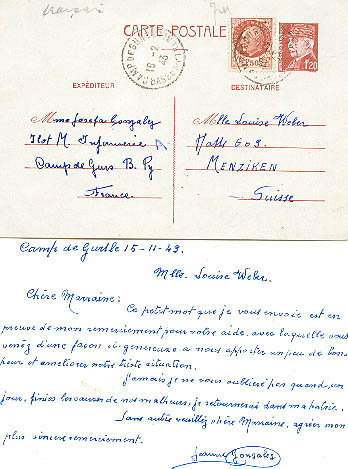 français
CARTE POSTALE
CAMP DE GURS
16-2
43
1.20
EXPÉDITEUR
DESTINATAIRE
Mme Josefa Gonzalez
Ilot M. Infirmerie
Camp de Gurs B. Py
France.
Mlle Louise Weber
Matts 609.
MENZIKEN
Suisse
Camp de Gurs le 15-11-43.
Mlle. Louise Weber.
Chère Marraine:
Ce petit mot que je vous envoie est en
preuve de mon remerciement pour votre aide, avec laquelle vous
venéz d'une façon si genereuse a nous apporter un peu de bon-
heur et ameliorer notre triste situation.
Jamais je ne vous oublierè pas quand, un
jour, finies les causes de nos malheurs, je retournerai dans ma patrie.
Sans autre veuilléz chère Marraine, agréer mon
plus sincere remerciement.
Jeanne Gonzales